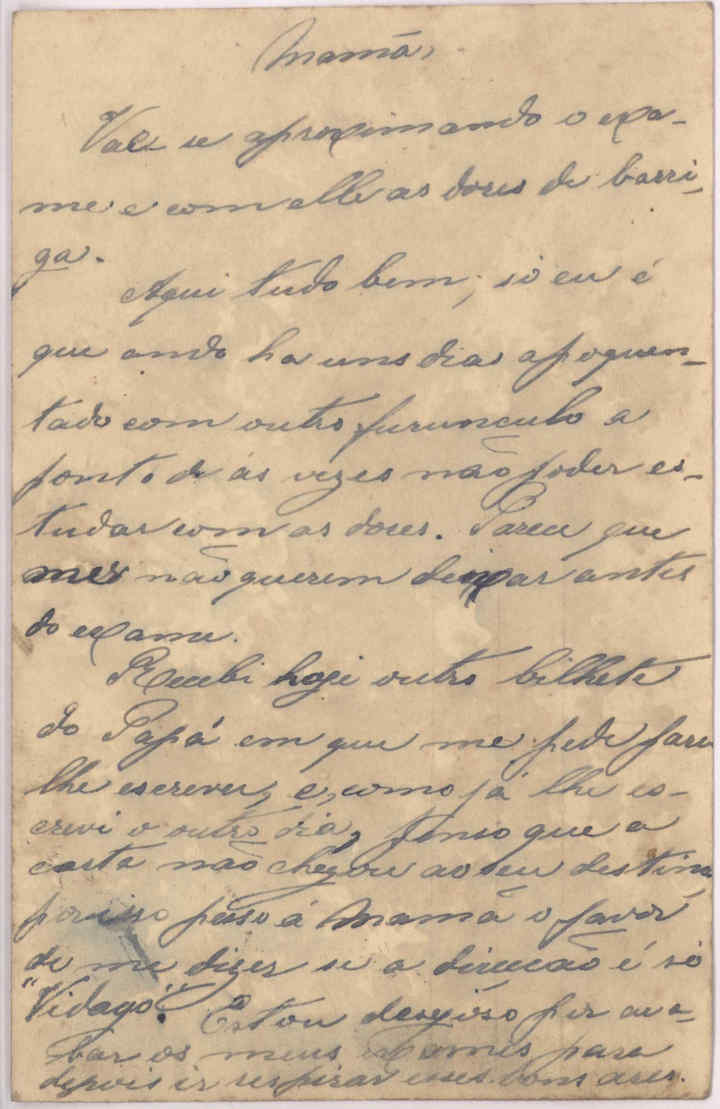 Mamã,
Vae se aproximando o exa-
me e com elle as dores de barri-
ga.
Aqui tudo bem; só eu é
que ando ha uns dia apoquen-
tado com outro furunculo a
ponto de ás vezes não poder es-
tudar com as dores. Parece que
me não querem deixar antes
do exame.
Recebi hoje outro bilhete
do Papá em que me pede para
lhe escrever, e, como já lhe es-
crevi o outro dia, penso que a
carta não chegou ao seu destino
por isso peço á Mamã o favor
de me dizer se a direcção é só
"Vidago". Estou desejoso por aca-
bar os meus exames para
depois ir respirar esses bons ares.